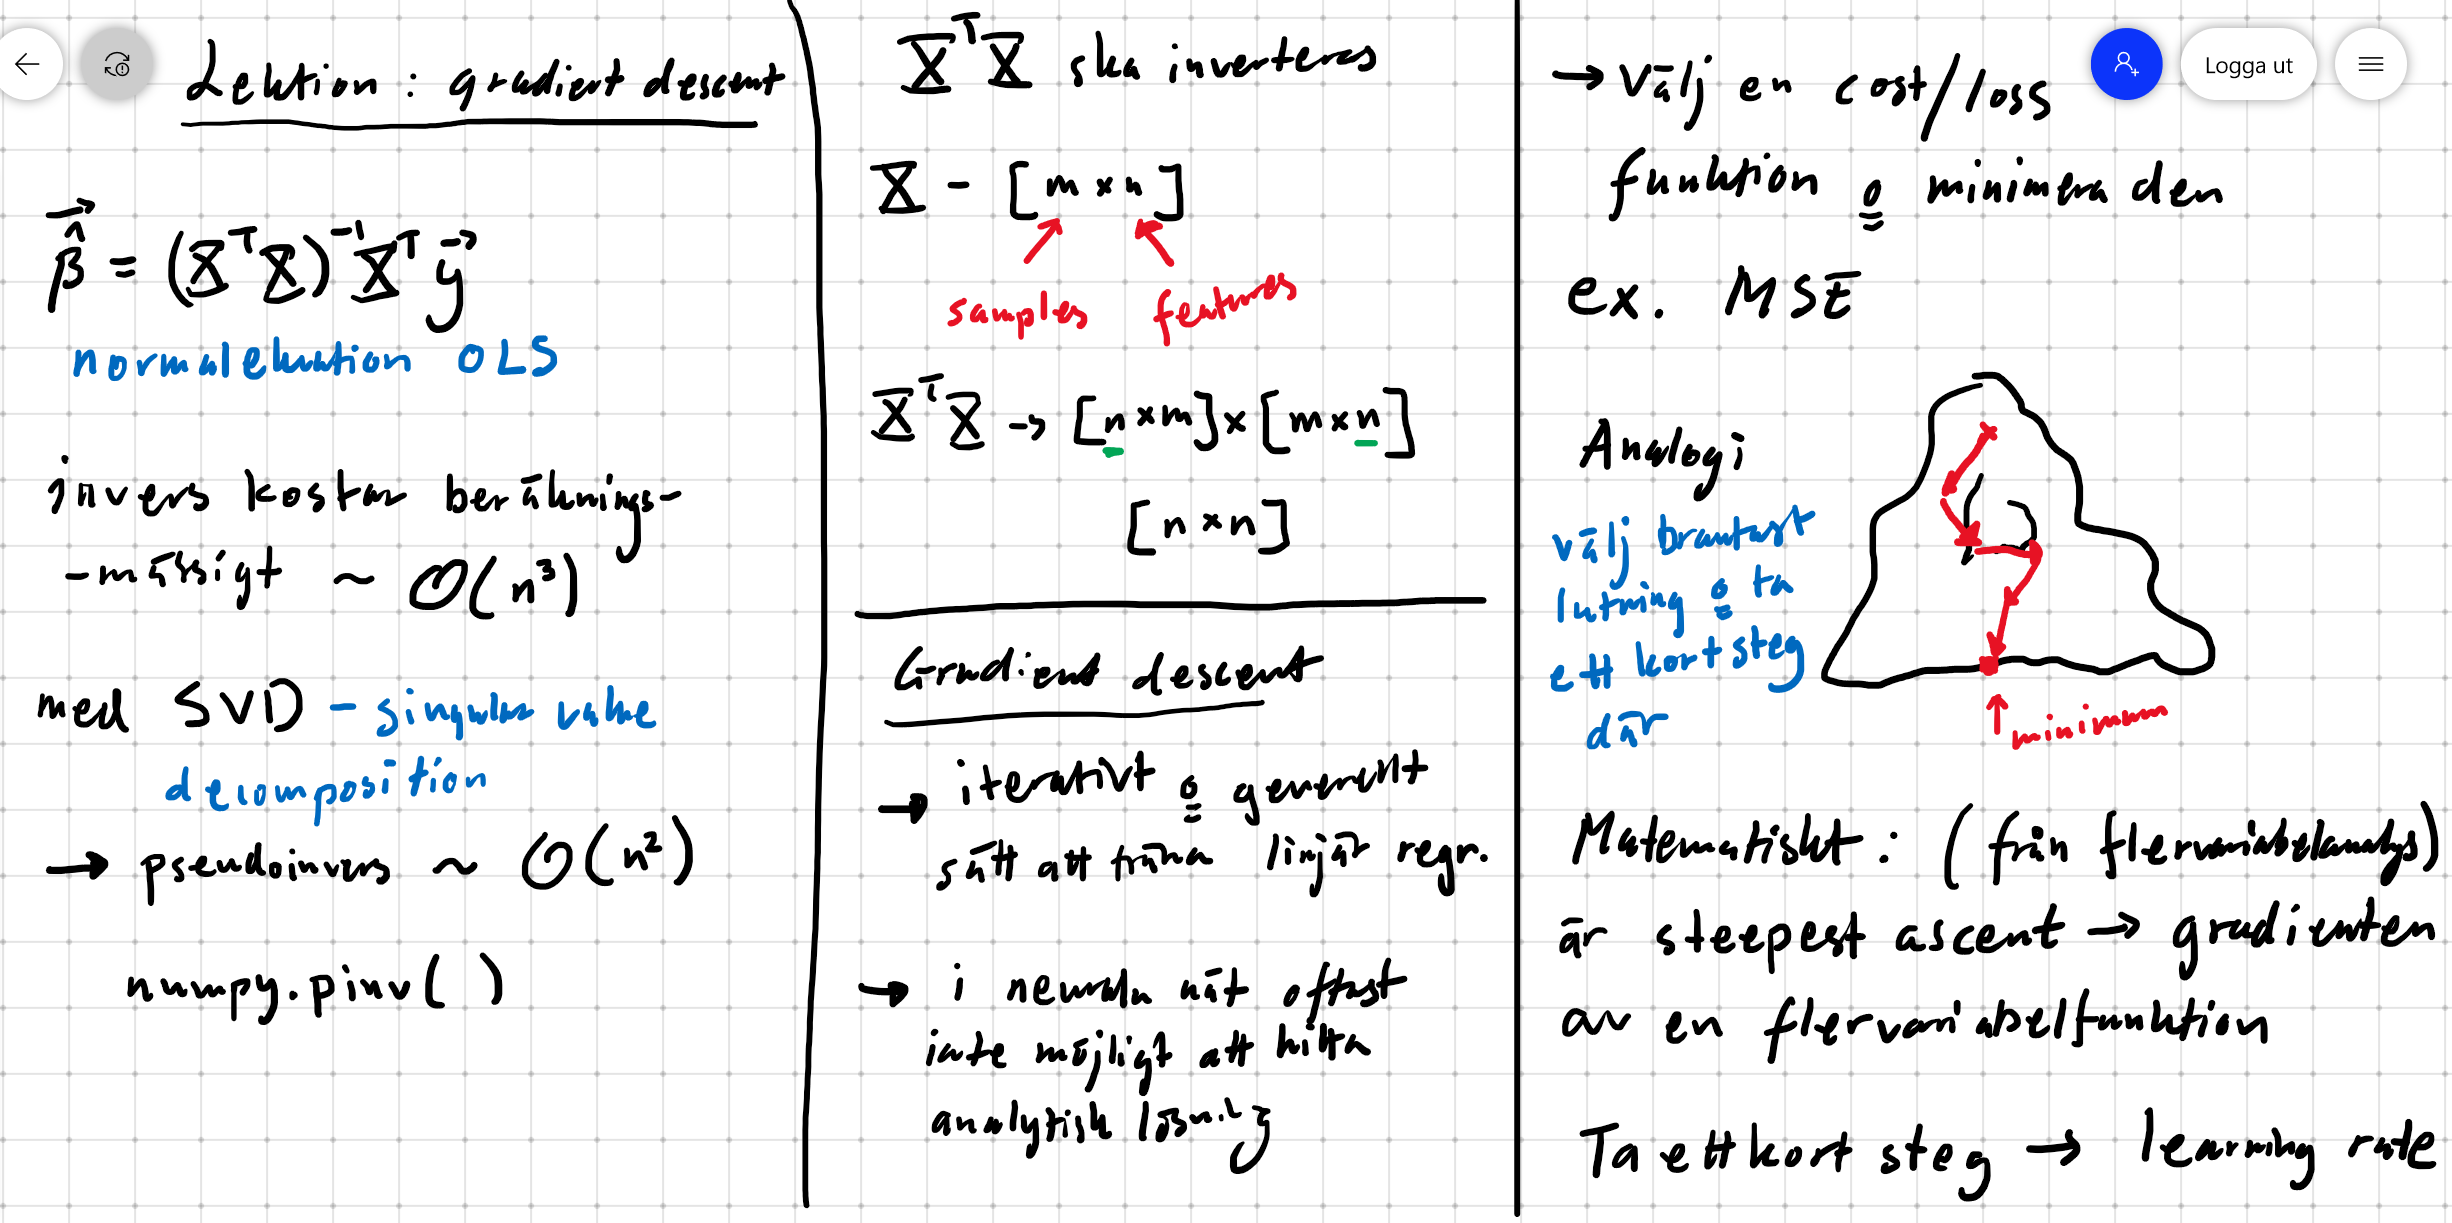 Lektion: gradient descent
β̂ = (XᵀX)⁻¹Xᵀy
normalekvation OLS
invers kostar beräknings-
-mässigt ~ O(n³)
med SVD - singular value
decomposition
→ pseudoinvers ~ O(n²)
numpy.pinv( )
XᵀX ska inverteras
X - [m×n]
samples features
XᵀX → [n×m]×[m×n]
[n×n]
Gradient descent
→ iterativt o generellt
sätt att träna linjär regr.
→ i neurala nät oftast
inte möjligt att hitta
analytisk lösning
→ Välj en cost/loss
funktion o minimera den
ex. MSE
Analogi
välj brantast
lutning o ta
ett kort steg
där
↑ minimum
Matematiskt: (från flervariabelanalys)
är steepest ascent → gradienten
av en flervariabelfunktion
Ta ett kort steg → learning rate
Logga ut